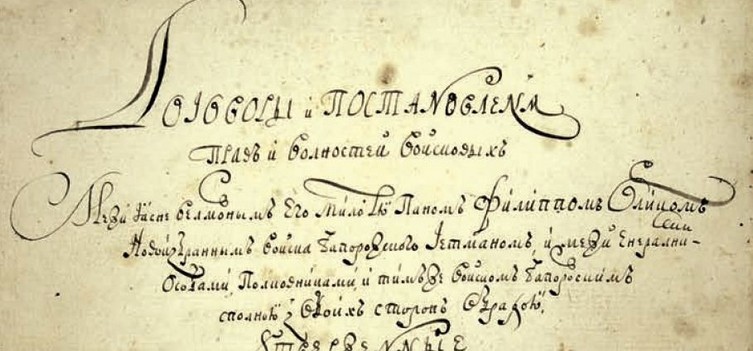 Договоры и Постановленя
Правъ и волностей войсковыхъ
Межи Ясне велможнымъ Его Милостю Паномъ Филиппомъ Орликомъ
Новоизбраннымъ войска Запорожского Гетманомъ, и межи Енерални-
Особами Полковниками, и тимже войскомъ Запорожскимъ
сполною з обоихъ сторонъ обрадою,
Утверженные